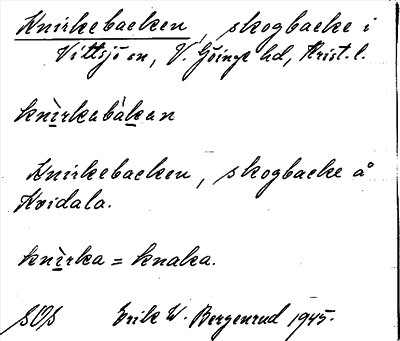 Knirkebacken, skogbacke i
Vittsjö sn, V. Göinge hd, Krist. l.
knìrkabàkan
Knirkebacken, skogbacke å
Hvidala.
knìrka = knaka.
SOS Erik W. Bergenrud 1945.